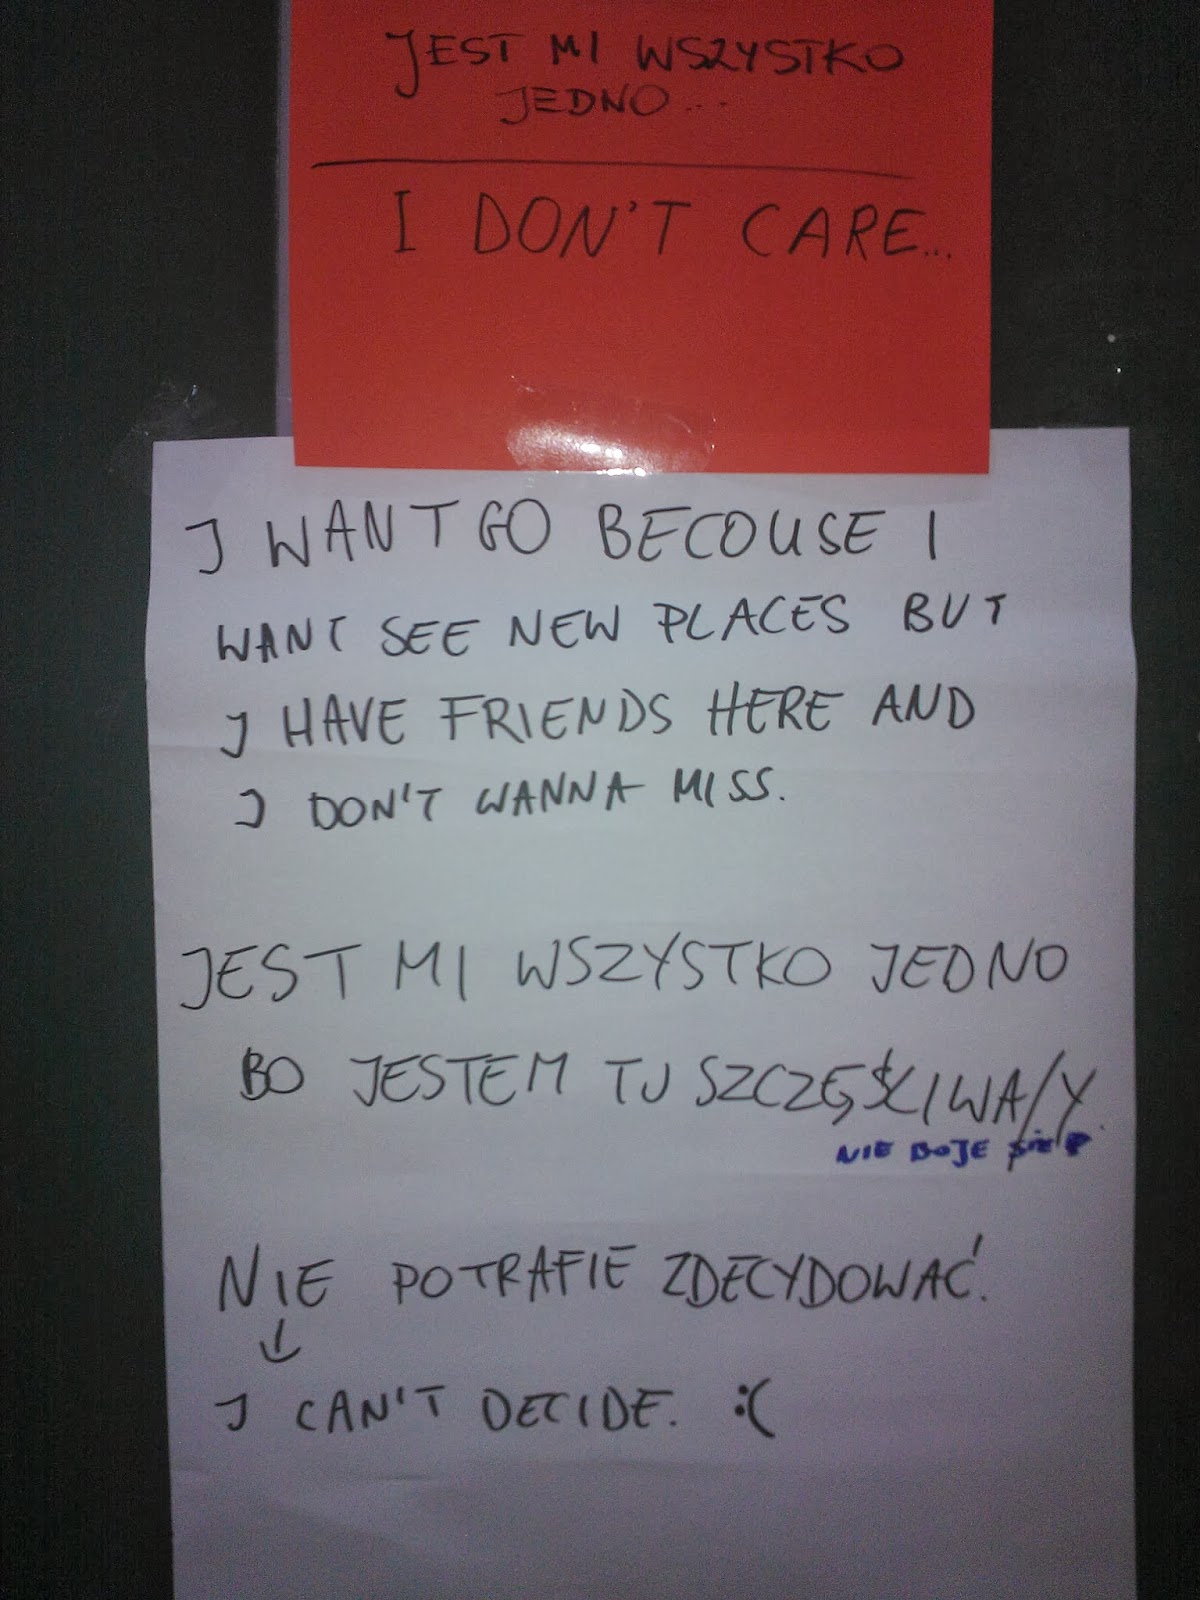 JEST MI WSZYSTKO
JEDNO...
I DON'T CARE...
J WANT GO BECOUSE I
WANT SEE NEW PLACES BUT
J HAVE FRIENDS HERE AND
J DON'T WANNA MISS.
JEST MI WSZYSTKO JEDNO
BO JESTEM TU SZCZĘŚLIWA/Y.
NIE BOJE SIĘ
NIE POTRAFIE ZDECYDOWAĆ.
J CAN'T DECIDE. :(